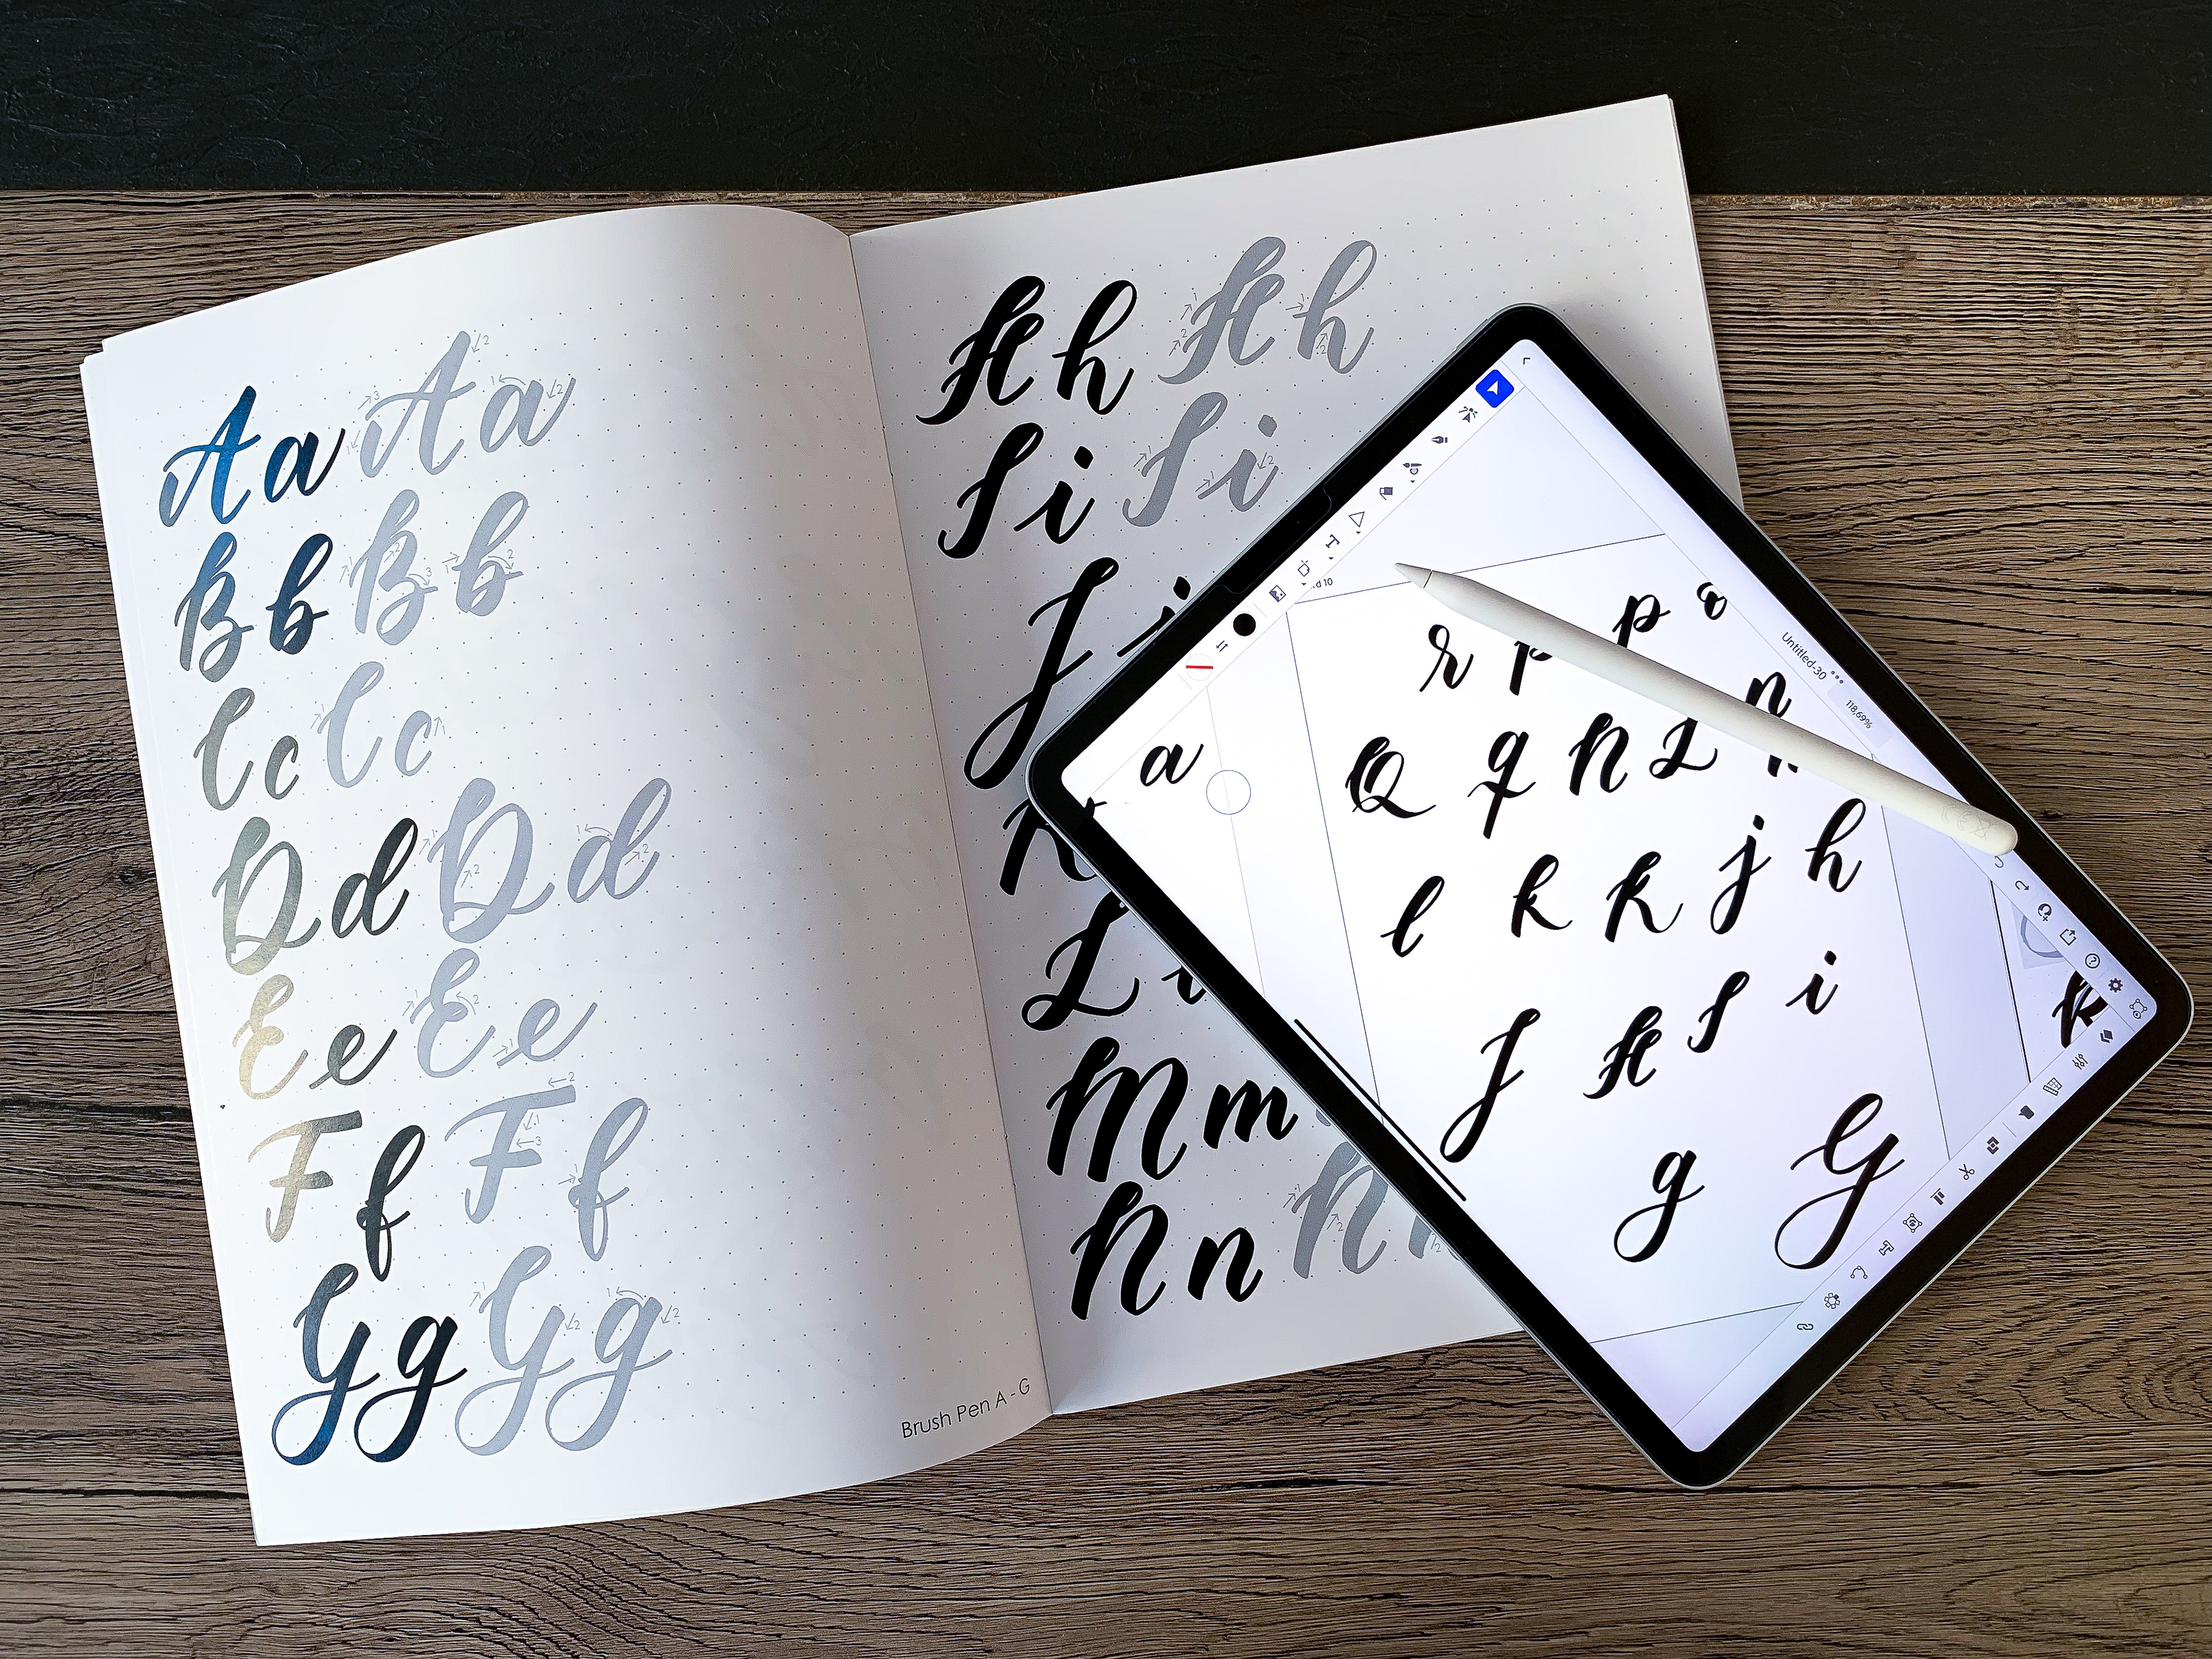 Aa Aa
Bb Bb
Cc Cc
Dd Dd
Ee Ee
Ff Ff
Gg Gg
Brush Pen A - G
Hh Hh
Ii Ii
J j
K
L
Mm
Nn N
Untitled-30 ••• 118,69%
d 10
a
r p p o
Q q N L n
l k K j h
J H I i
g G
K